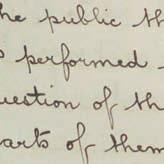 the public th
performed
uestion of th
arts of them